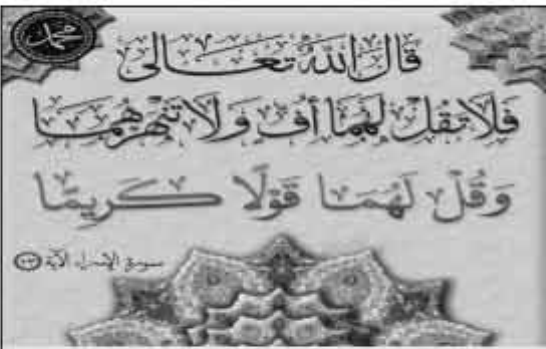 محمد
قال الله تعالى
فَلَا تَقُلْ لَهُمَا أُفٍّ وَلَا تَنْهَرْهُمَا
وَقُلْ لَهُمَا قَوْلًا كَرِيمًا
سورة الإسراء الآية ٢٣